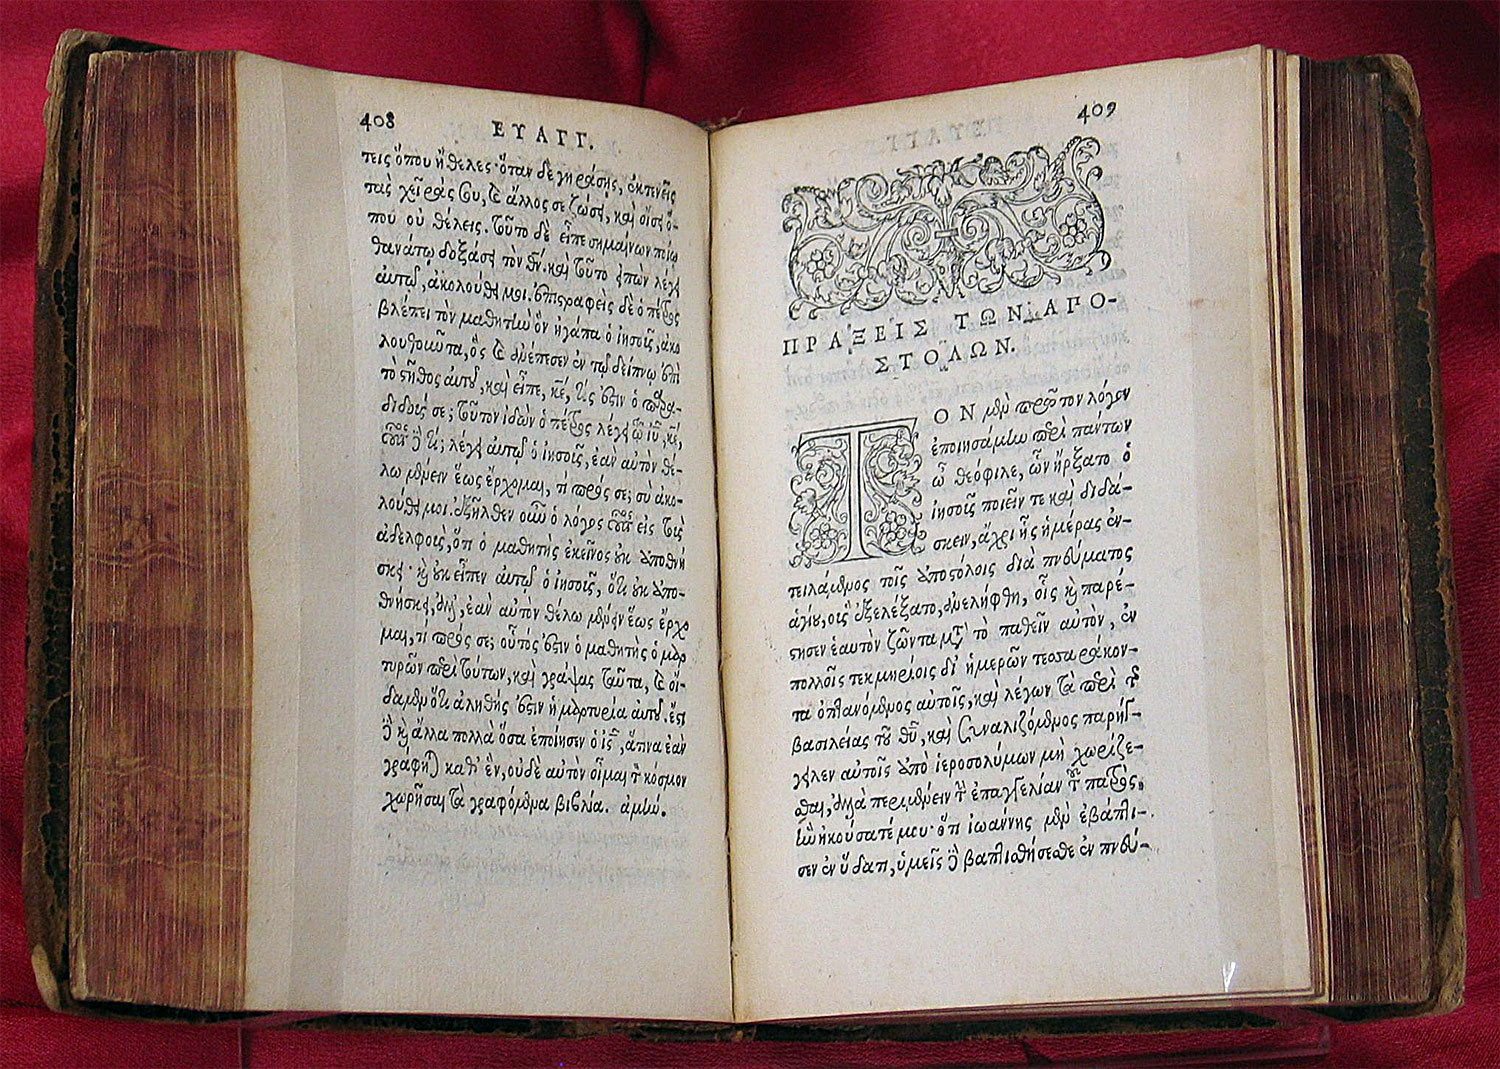 408
ΕΥΑΓΓ.
τεις ὅπου ἤθελες· ὅταν δὲ γηράσῃς, ἐκτενεῖς
τὰς χεῖράς σου, καὶ ἄλλος σε ζώσῃ, καὶ οἴσῃ ὅ-
που οὐ θέλεις. τοῦτο δὲ εἶπε σημαίνων ποίῳ
θανάτῳ δοξάσει τὸν θν̅. καὶ τοῦτο εἰπὼν λέγει
αὐτῷ, ἀκολούθει μοι. ἐπιστραφεὶς δὲ ὁ πέτρος
βλέπει τὸν μαθητὴν ὃν ἠγάπα ὁ ἰησοῦς, ἀκο
λουθοῦντα, ὃς καὶ ἀνέπεσεν ἐν τῷ δείπνῳ ἐπὶ
τὸ στῆθος αὐτοῦ, καὶ εἶπε, κε̅, τίς ἐστιν ὁ παρα-
διδούς σε; τοῦτον ἰδὼν ὁ πέτρος λέγει τῷ ιυ̅, κε̅,
οὗτος δὲ τί; λέγει αὐτῷ ὁ ἰησοῦς, ἐὰν αὐτὸν θέ-
λω μένειν ἕως ἔρχομαι, τί πρός σε; σὺ ἀκο-
λούθει μοι. ἐξῆλθεν οὖν ὁ λόγος οὗτος εἰς τοὺς
ἀδελφοὺς, ὅτι ὁ μαθητὴς ἐκεῖνος οὐκ ἀποθνή
σκει· καὶ οὐκ εἶπεν αὐτῷ ὁ ἰησοῦς, ὅτι οὐκ ἀπο-
θνήσκει, ἀλλ', ἐὰν αὐτὸν θέλω μένειν ἕως ἔρχο
μαι, τί πρός σε; οὗτός ἐστιν ὁ μαθητὴς ὁ μαρ
τυρῶν περὶ τούτων, καὶ γράψας ταῦτα, καὶ οἴ-
δαμεν ὅτι ἀληθής ἐστιν ἡ μαρτυρία αὐτοῦ. ἔστι
δὲ καὶ ἄλλα πολλὰ ὅσα ἐποίησεν ὁ ις̅, ἅτινα ἐὰν
γράφηται καθ' ἓν, οὐδὲ αὐτὸν οἶμαι τὸν κόσμον
χωρῆσαι τὰ γραφόμενα βιβλία. ἀμήν.
409
ΠΡΑΞΕΙΣ ΤΩΝ ΑΠΟ-
ΣΤΟΛΩΝ.
ΤΟΝ μὲν πρῶτον λόγον
ἐποιησάμην περὶ πάντων
ὦ θεόφιλε, ὧν ἤρξατο ὁ
ἰησοῦς ποιεῖν τε καὶ διδά-
σκειν, ἄχρι ἧς ἡμέρας ἐν-
τειλάμενος τοῖς ἀποστόλοις διὰ πνεύματος
ἁγίου, οὓς ἐξελέξατο, ἀνελήφθη, οἷς καὶ παρέ-
στησεν ἑαυτὸν ζῶντα μετὰ τὸ παθεῖν αὐτὸν, ἐν
πολλοῖς τεκμηρίοις δι' ἡμερῶν τεσσαράκον-
τα ὀπτανόμενος αὐτοῖς, καὶ λέγων τὰ περὶ τῆς
βασιλείας τοῦ θυ̅, καὶ συναλιζόμενος παρήγ-
γειλεν αὐτοῖς ἀπὸ ἱεροσολύμων μὴ χωρίζε-
σθαι, ἀλλὰ περιμένειν τὴν ἐπαγγελίαν τοῦ πατρὸς,
ἣν ἠκούσατέ μου· ὅτι ἰωάννης μὲν ἐβάπτι-
σεν ἐν ὕδατι, ὑμεῖς δὲ βαπτισθήσεσθε ἐν πνεύ-